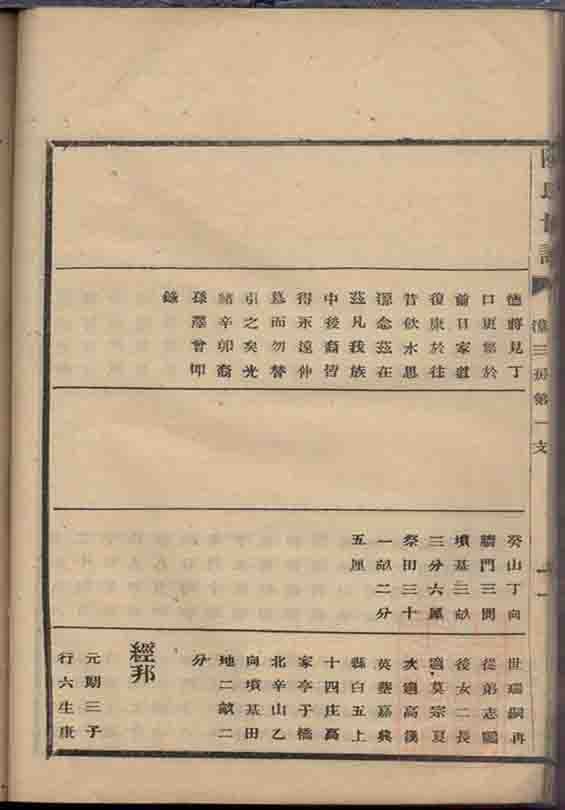 陳氏世譜
三房第一支
德蔣見丁
口更繁於
前日家道
復康於往
昔飲水思
源念茲在
茲凡我族
中後裔皆
得永遠仲
慕而勿替
引之矣光
緒辛卯裔
孫澤會叩
錄
癸山丁向
牆門三間
墳基三畝
三分六厘
祭田三十
一畝二分
五厘
世瑞嗣再
從弟志
後女二長
適莫宗夏
次適高
英葬嘉興
縣白五上
十四庄高
家亭子橋
北辛山乙
向墳基田
地二畝二
分
經邦
元期三子
行六生康